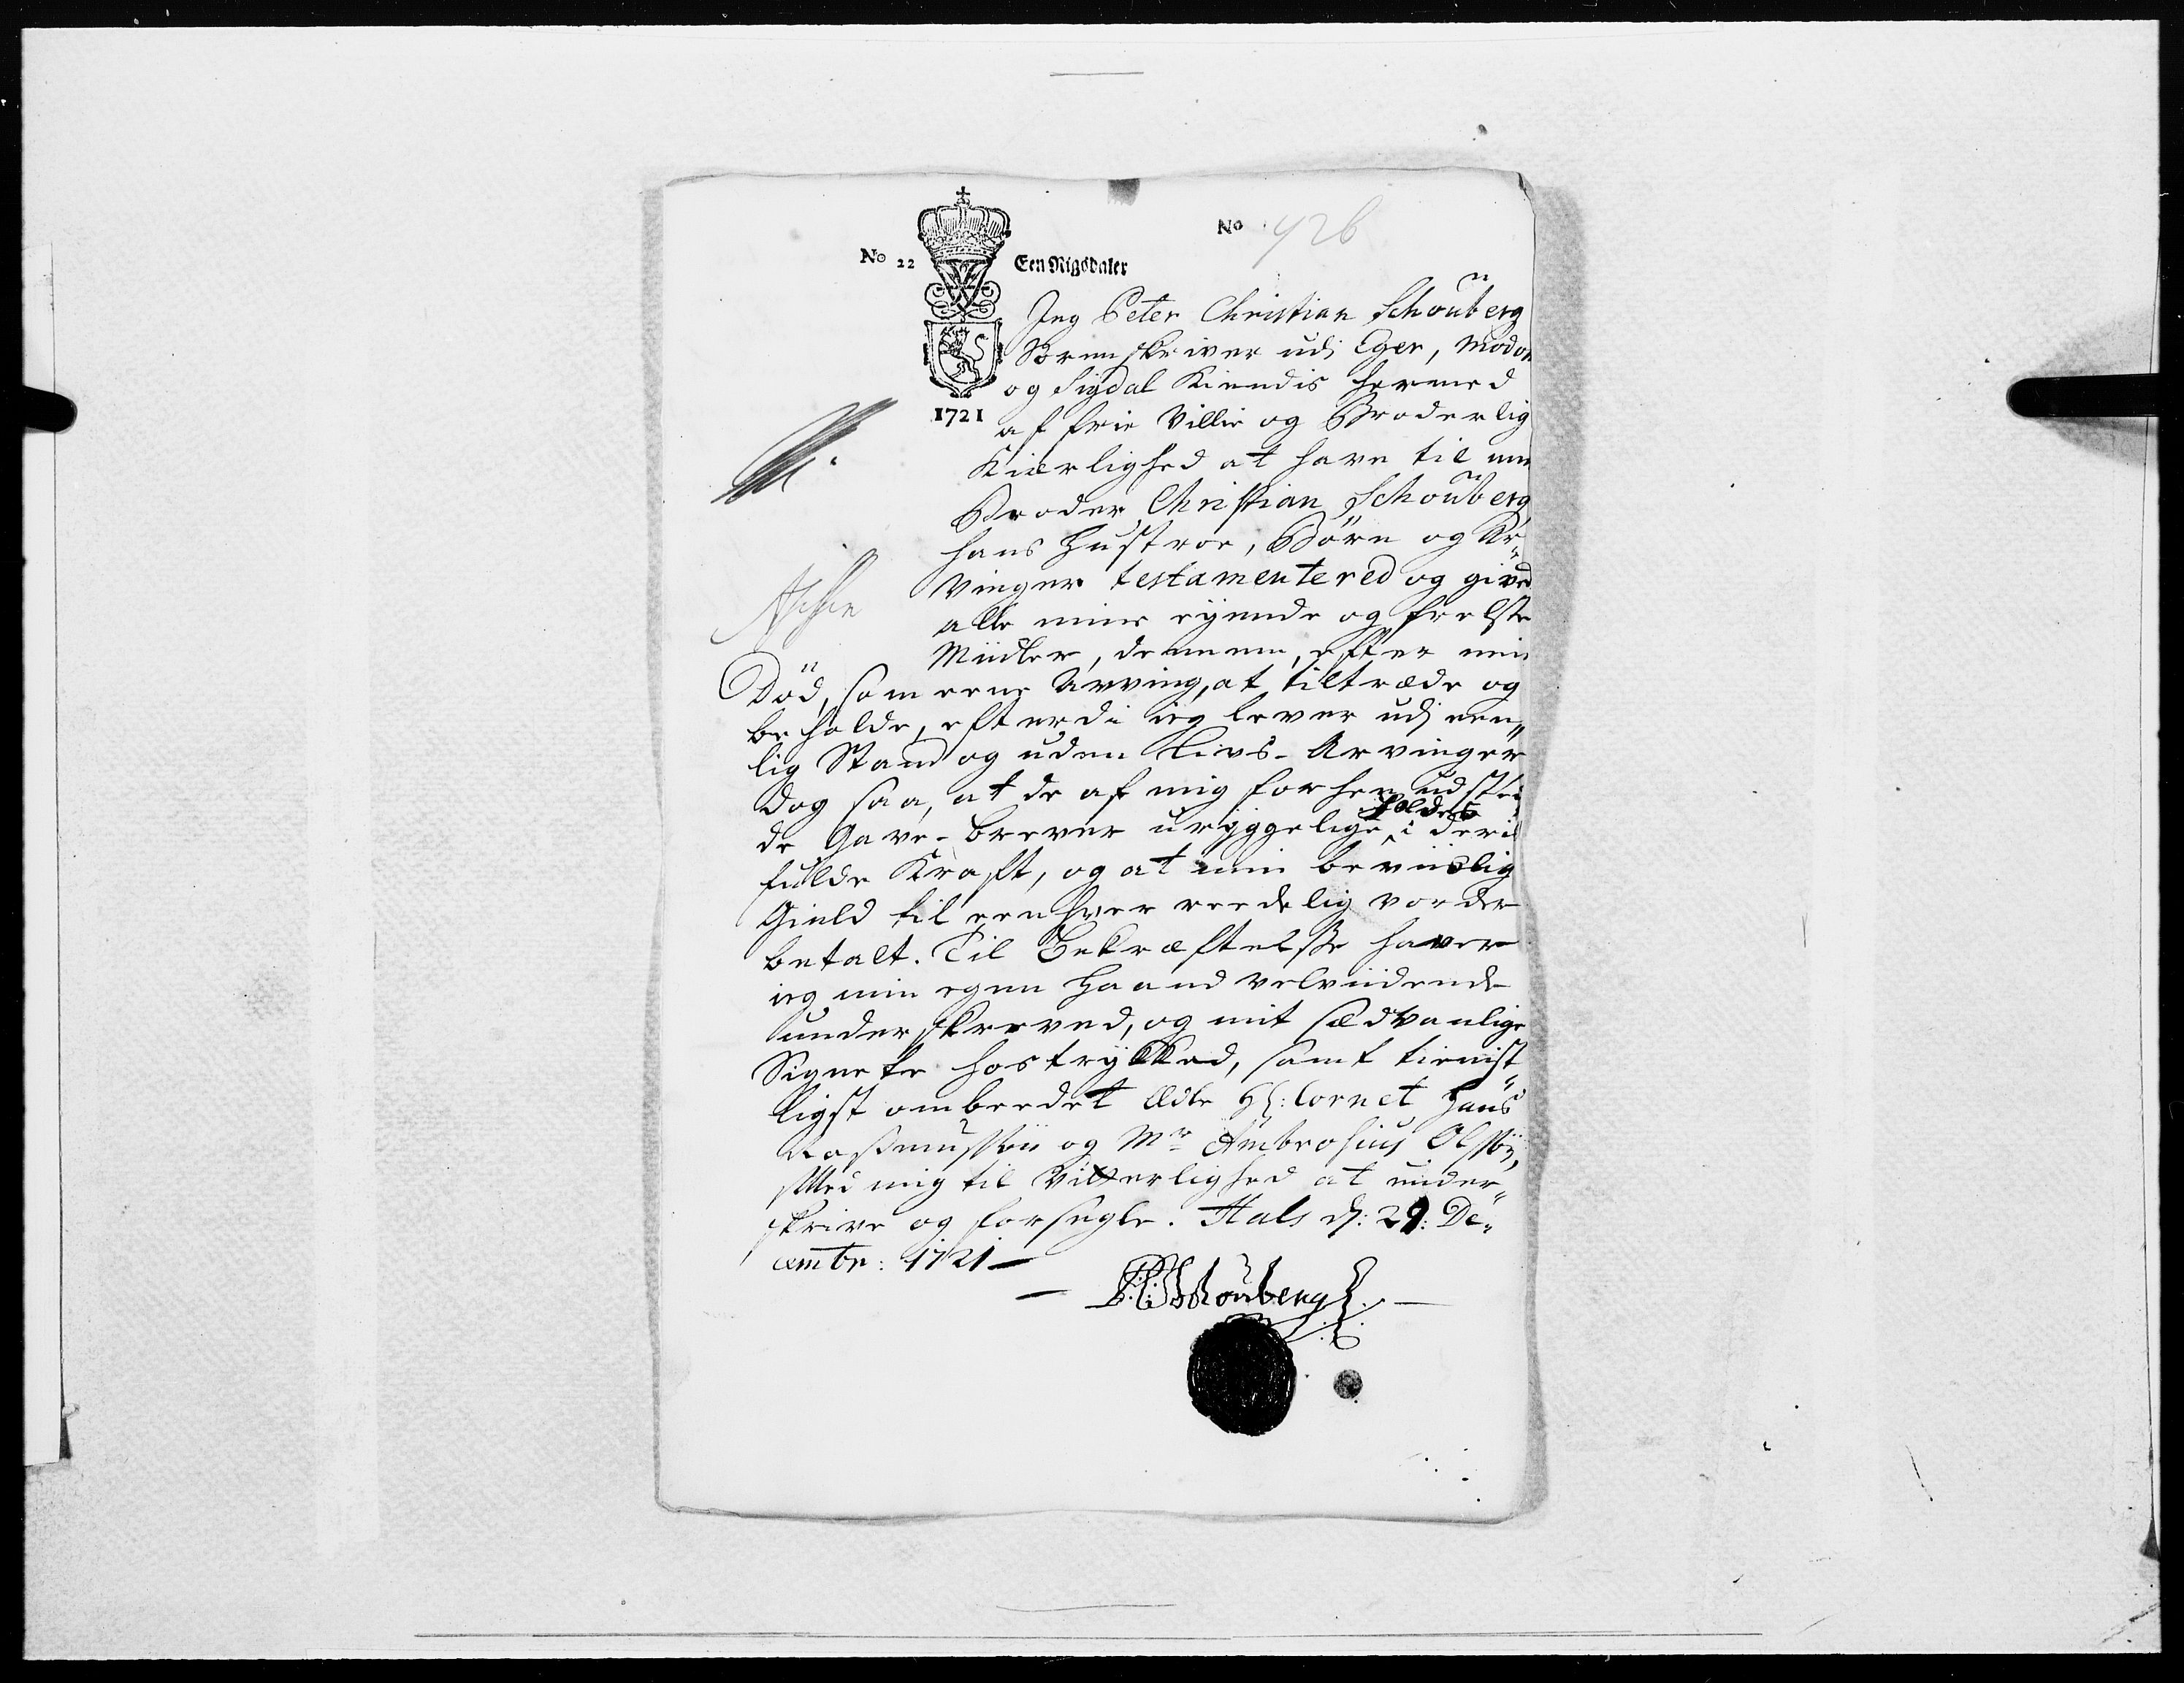 No 426
No 22 Een Rigsdaler
1721
Jeg Peter Christian Schouberg
Sorenskriver udj Eger, Modon
og Sigdal Kiendis hermed
af frie Villie og Broderlig
Kierlighed at have til min
Broder Christian Schouberg
hans Hustroe, Börn og Ar„
vinger testamentered og gived
alle mine eyende og frelste
Midler, dennem, efter min
Död, som eene Arving, at tiltræde og
beholde, efterdi ieg lever udj een„
lig Stand og uden Livs-Arvinger
dog saa, at de af mig forhen udste
de Gave-breve uryggelige holdes i deris
fulde Kraft, og at min beviislig
Gield til eenhver reedelig vorder
betalt. Til Bekræftelsse haver
ieg min egen Haand velviidende
underskreved, og mit sædvanlige
Signete hostrykked, samt tienist„
ligst ombeedet Ædle Hr: Cornet Hans
Rasmussön og Mr Ambrosius Olssön,
Med mig til Vitterlighed at under„
skrive og forsegle. Hals d: 29: De„
cembr: 1721
PC Schouberg